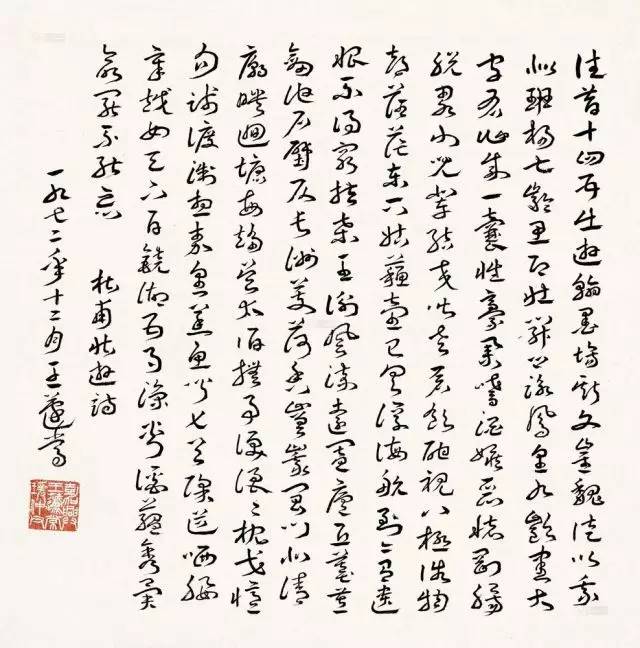 往昔十四五出遊翰墨場斯文崔魏徒以我
似班揚七齡思即壯開口詠鳳皇九齡書大
字有作成一囊性豪業嗜酒嫉惡懷剛腸
脫略小時輩結交皆老蒼飲酣視八極俗物
都茫茫東下姑蘇臺已具浮海航到今有遺
恨不得窮扶桑王謝風流遠闔廬丘墓荒
劍池石壁仄長洲芰荷香嵯峨閶門北清
廟映迴塘每趨吳太伯撫事淚浪々枕戈憶
勾踐渡浙想秦皇蒸魚聞匕首除道哂要
章越女天下白鏡湖五月涼剡溪蘊秀異
欲罷不能忘 杜甫壯遊詩
一九七二年十二月王蘧常